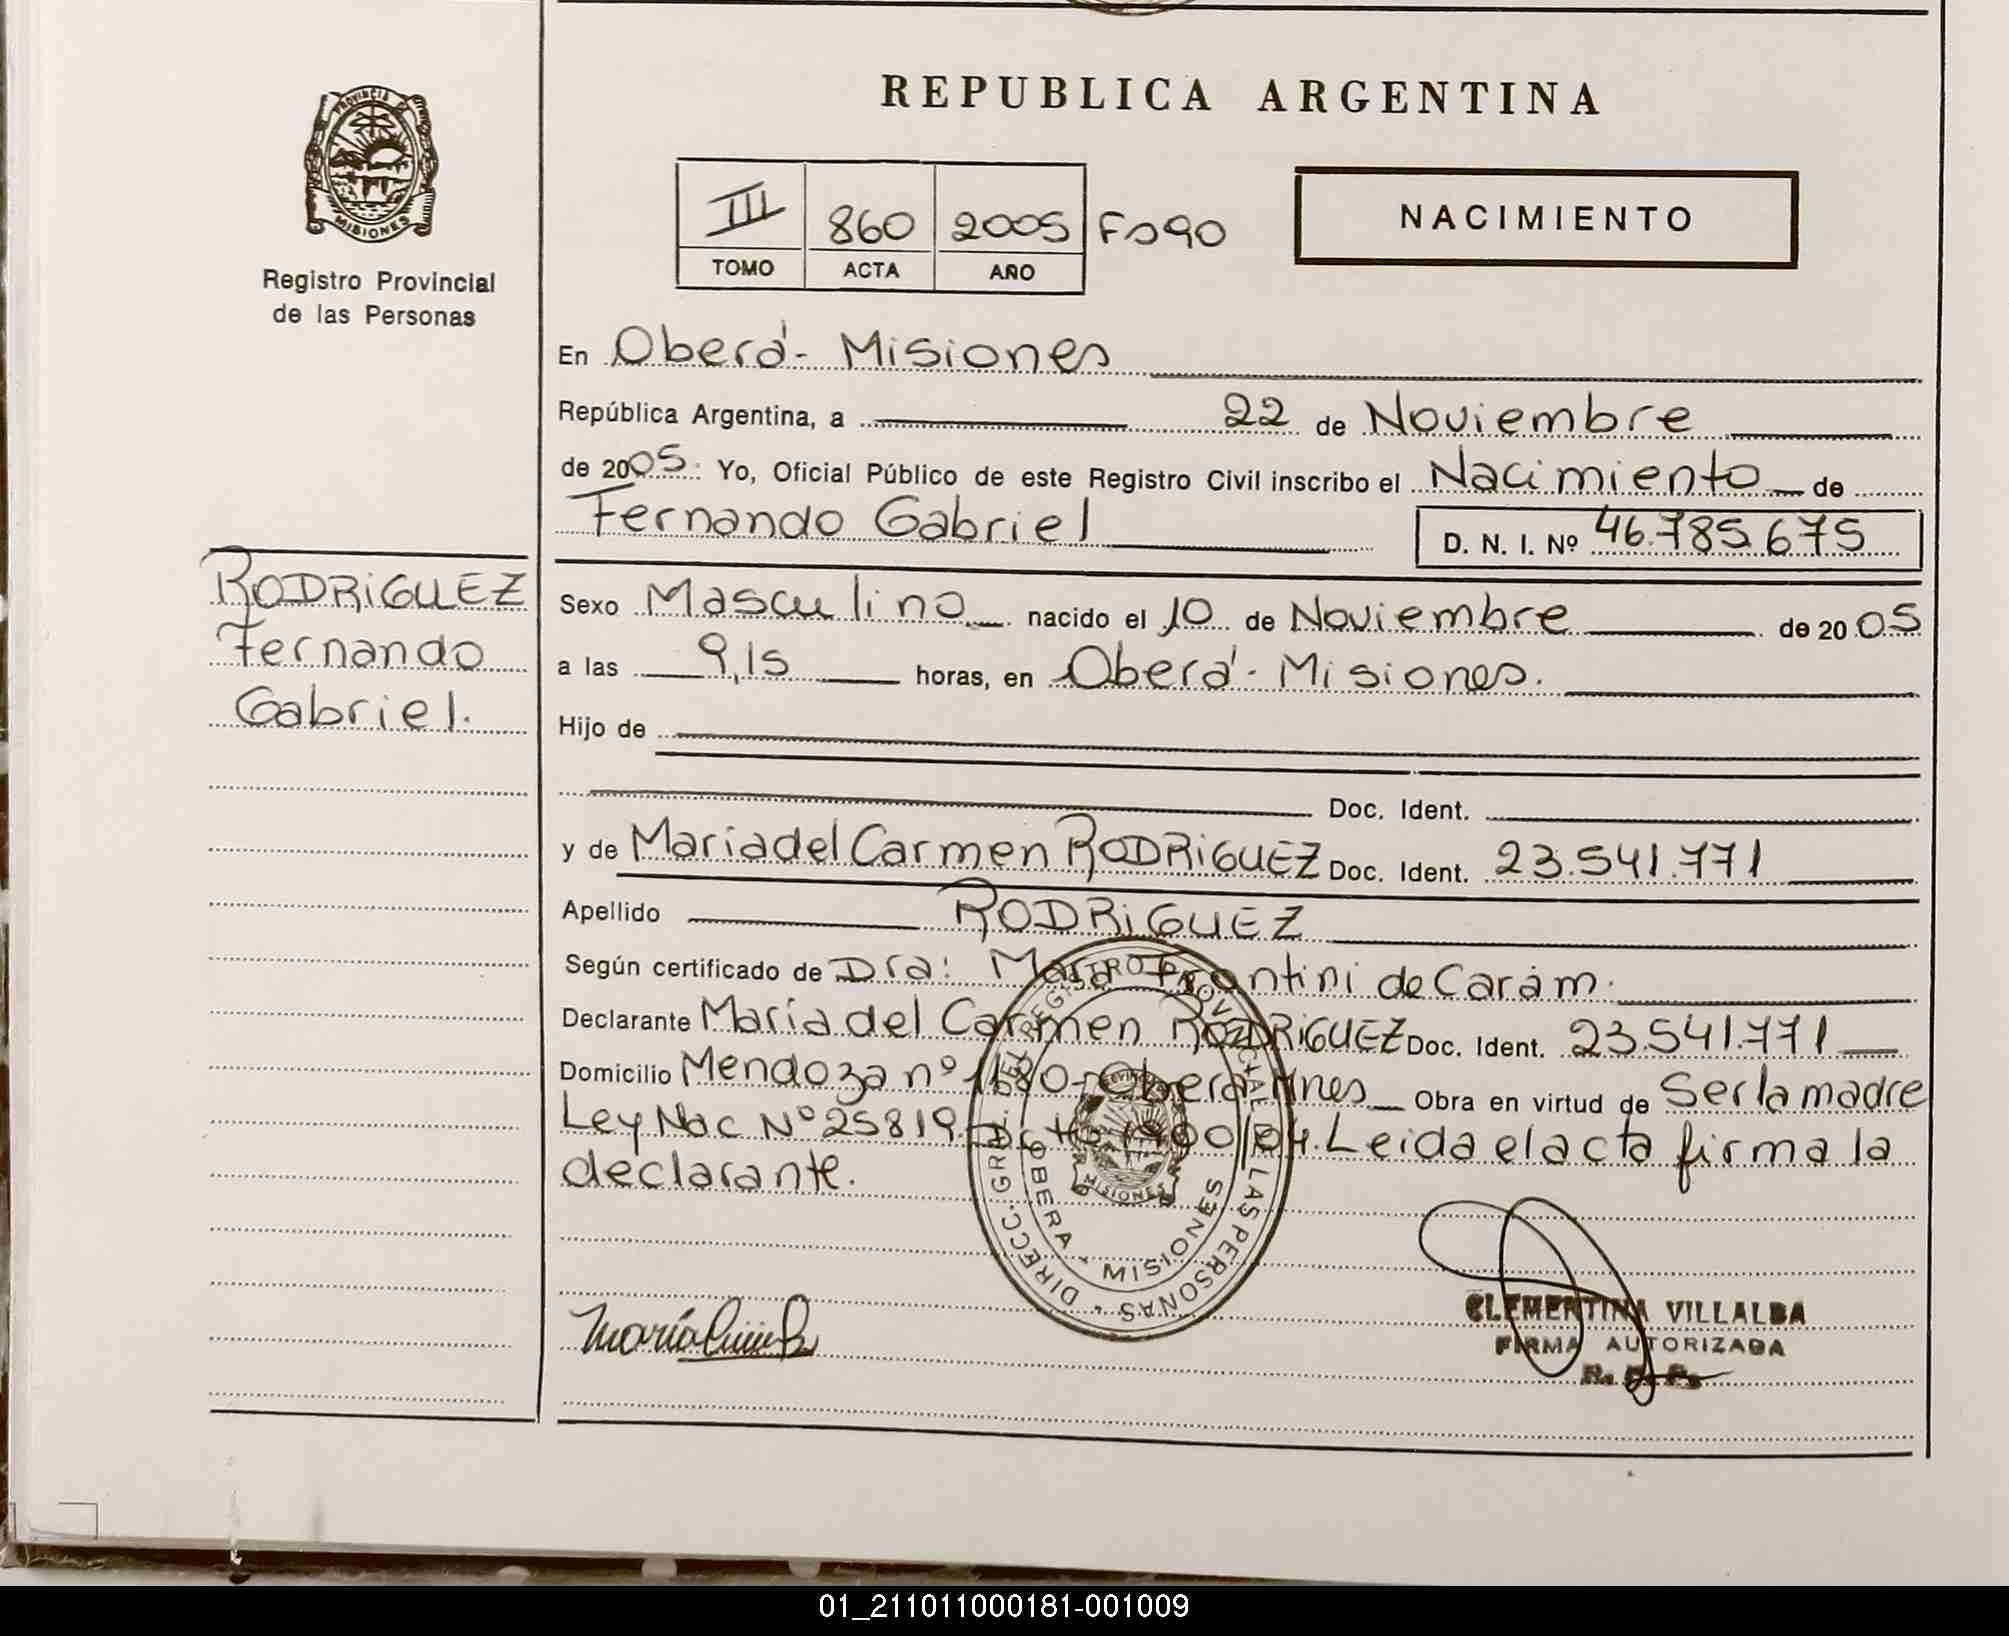 PROVINCIA
MISIONES
Registro Provincial
de las Personas
REPUBLICA ARGENTINA
III 860 2005 Fo 90
TOMO ACTA AÑO
NACIMIENTO
En Oberá - Misiones
República Argentina, a 22 de Noviembre
de 2005 : Yo, Oficial Público de este Registro Civil inscribo el Nacimiento de
Fernando Gabriel D. N. I. Nº 46.785.675
RODRIGUEZ
Fernando
Gabriel.
Sexo Masculino nacido el 10 de Noviembre de 2005
a las 9,15 horas, en Oberá - Misiones.
Hijo de
Doc. Ident.
y de Maria del Carmen RODRIGUEZ Doc. Ident. 23.541.771
Apellido RODRIGUEZ
Según certificado de Dra: Frontini de Carám.
Declarante María del Carmen RODRIGUEZ Doc. Ident. 23.541.771
Domicilio Mendoza nº 1680 - Oberá Mnes Obra en virtud de Ser la madre
Ley Nac Nº 25819 /04. Leida el acta firma la
declarante.
DIRECC. GRAL. DEL REGISTRO PROVINCIAL DE LAS PERSONAS
OBERA - MISIONES
MISIONES
CLEMENTINA VILLALBA
FIRMA AUTORIZADA
R. P. P.
01_211011000181-001009